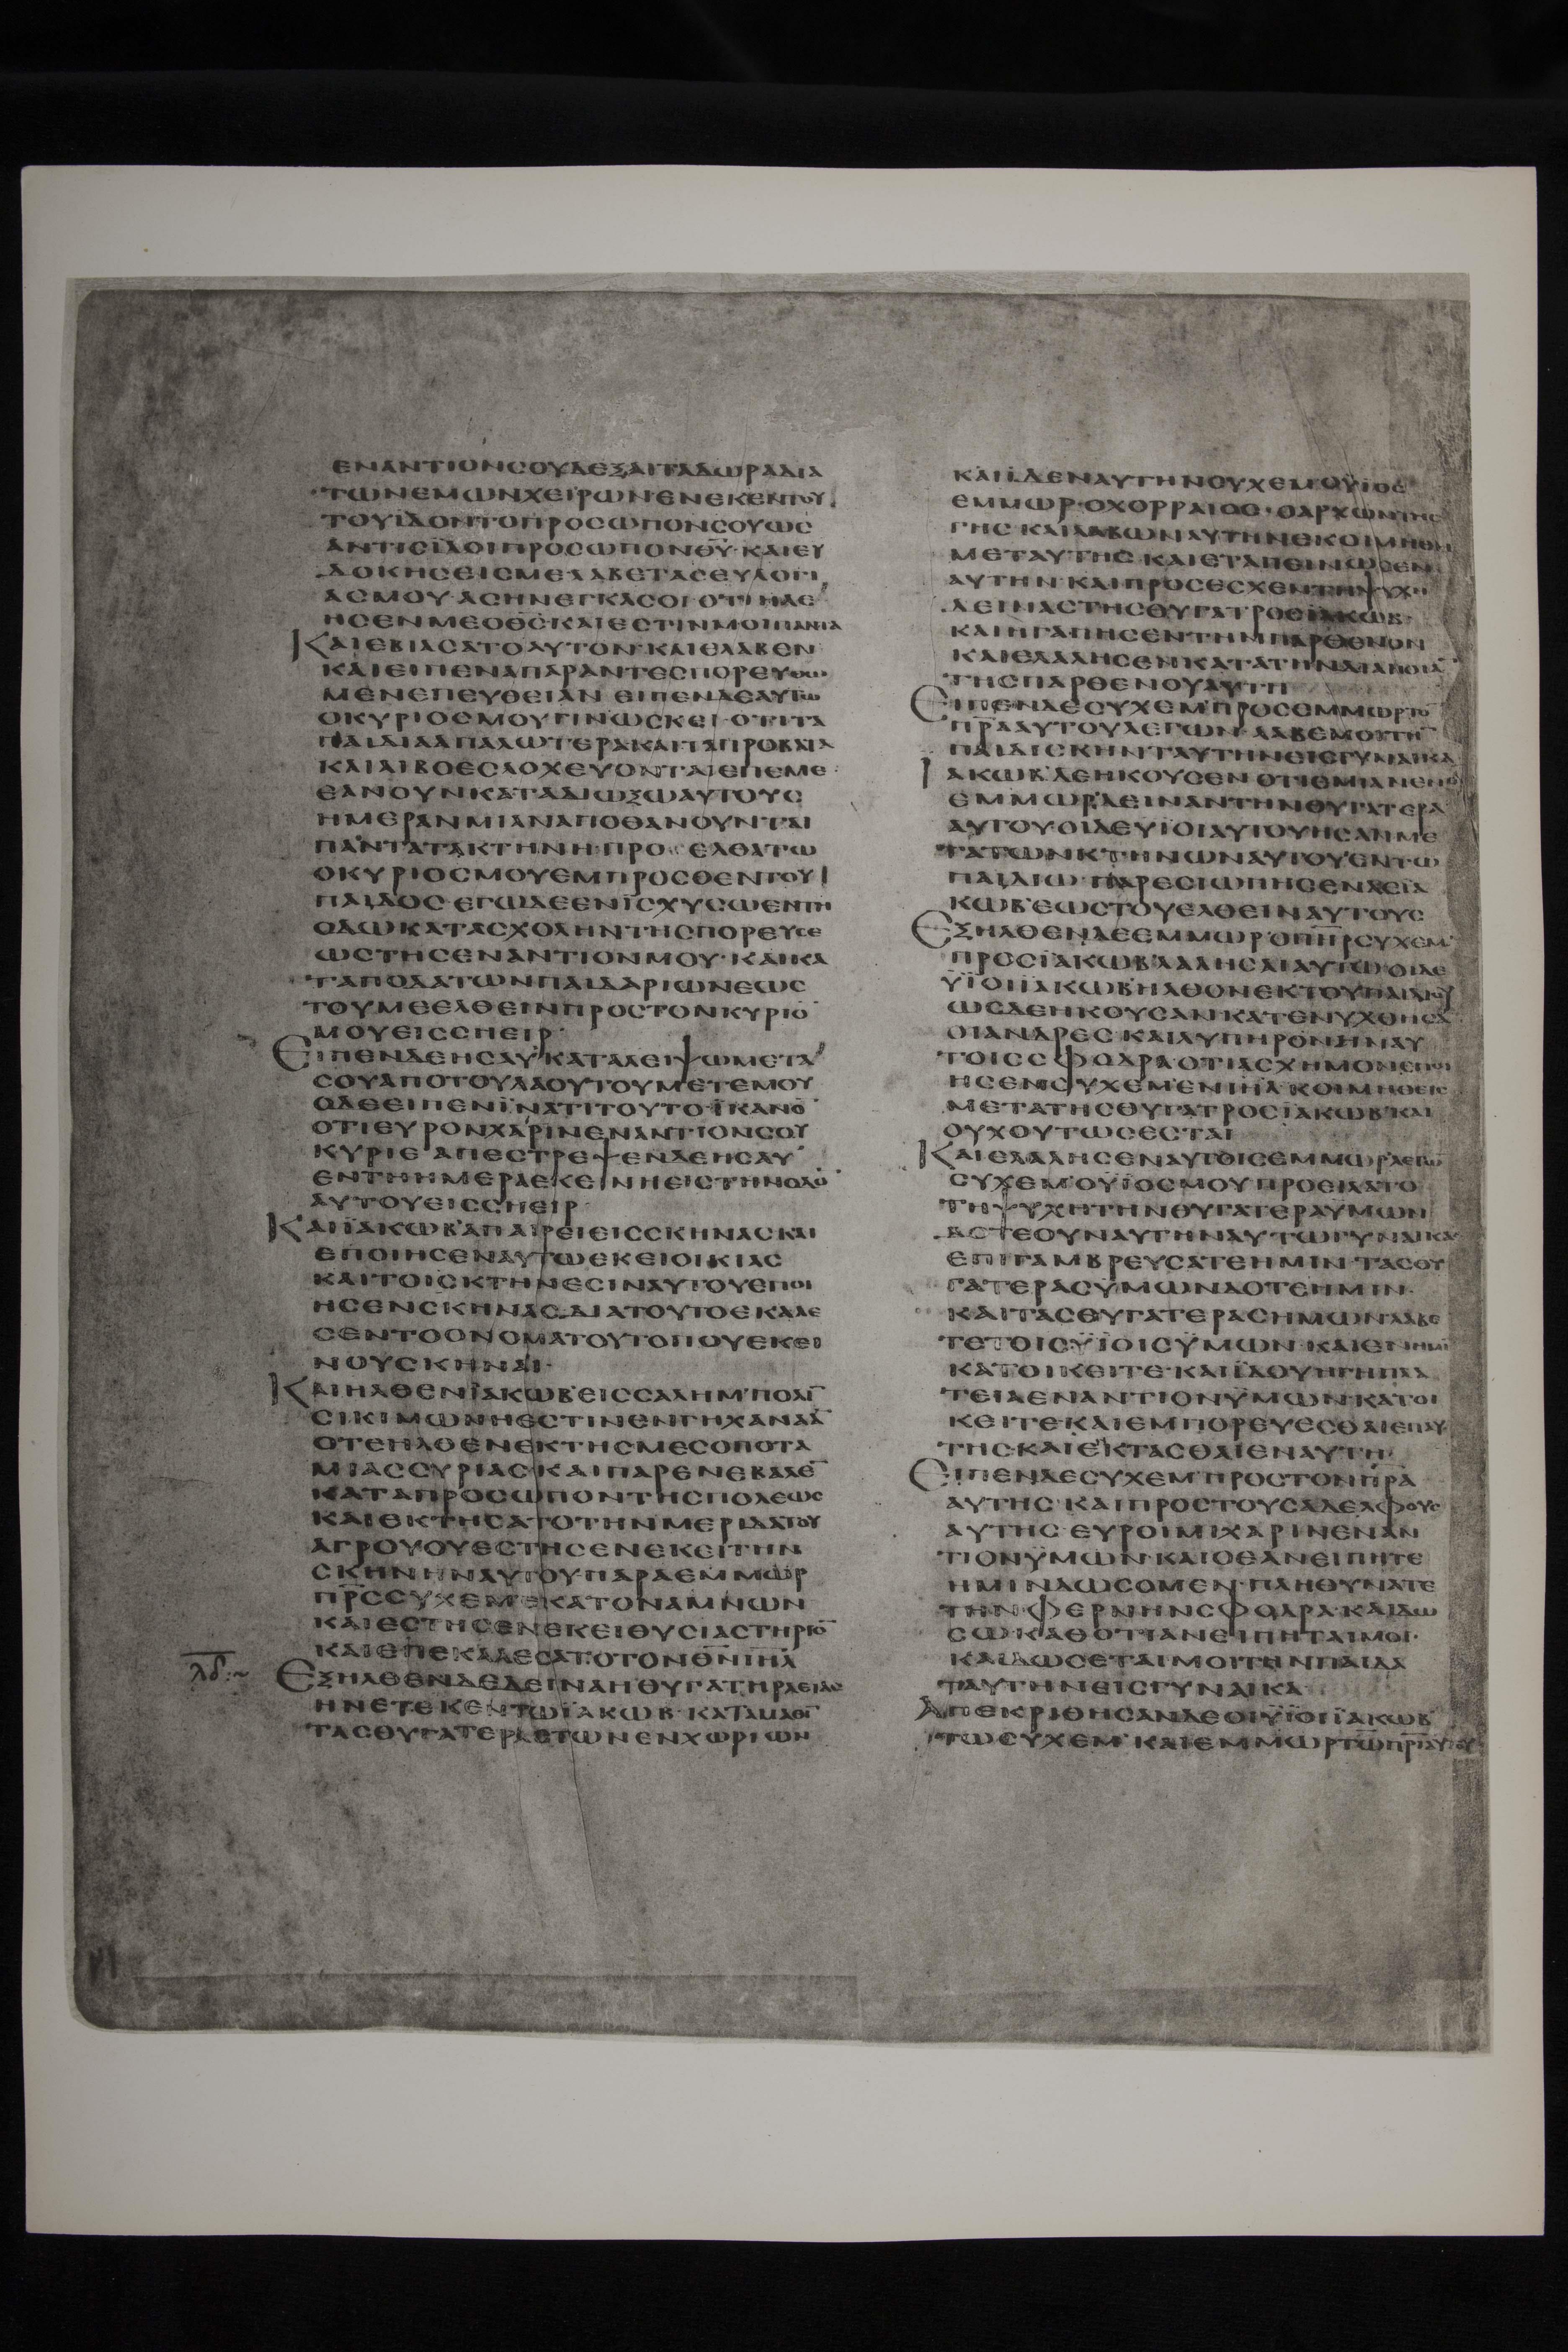 ΕΝΑΝΤΙΟΝΣΟΥΔΕΞΑΙΤΑΔΩΡΑΔΙΑ
ΤΩΝΕΜΩΝΧΕΙΡΩΝ·ΕΝΕΚΕΝΤΟΥ
ΤΟΥΪΔΟΝΤΟΠΡΟΣΩΠΟΝΣΟΥΩΣ
ΑΝΤΙΣΪΔΟΙΠΡΟΣΩΠΟΝΘΥ·ΚΑΙΕΥ
ΔΟΚΗΣΕΙΣΜΕ·ΛΑΒΕΤΑΣΕΥΛΟΓΙ
ΑΣΜΟΥ·ΑΣΗΝΕΓΚΑΣΟΙ·ΟΤΙΗΛΕ
ΗΣΕΝΜΕΟΘΣΚΑΙΕΣΤΙΝΜΟΙΠΑΝΤΑ
ΚΑΙΕΒΙΑΣΑΤΟΑΥΤΟΝ·ΚΑΙΕΛΑΒΕΝ
ΚΑΙΕΙΠΕΝΑΠΑΡΑΝΤΕΣΠΟΡΕΥΣΩ
ΜΕΝΕΠΕΥΘΕΙΑΝ ΕΙΠΕΝΔΕΑΥΤΩ
ΟΚΥΡΙΟΣΜΟΥΓΙΝΩΣΚΕΙ·ΟΤΙΤΑ
ΠΑΙΔΙΑΑΠΑΛΩΤΕΡΑΚΑΙΤΑΠΡΟΒΑΤΑ
ΚΑΙΑΙΒΟΕΣΛΟΧΕΥΟΝΤΑΙΕΠΕΜΕ·
ΕΑΝΟΥΝΚΑΤΑΔΙΩΞΩΑΥΤΟΥΣ
ΗΜΕΡΑΝΜΙΑΝΑΠΟΘΑΝΟΥΝΤΑΙ
ΠΑΝΤΑΤΑΚΤΗΝΗ·ΠΡΟΕΛΘΑΤΩ
ΟΚΥΡΙΟΣΜΟΥΕΜΠΡΟΣΘΕΝΤΟΥ
ΠΑΙΔΟΣ·ΕΓΩΔΕΕΝΪΣΧΥΣΩΕΝΤΗ
ΟΔΩΚΑΤΑΣΧΟΛΗΝΤΗΣΠΟΡΕΥΣΕ
ΩΣΤΗΣΕΝΑΝΤΙΟΝΜΟΥ·ΚΑΙΚΑ
ΤΑΠΟΔΑΤΩΝΠΑΙΔΑΡΙΩΝΕΩΣ
ΤΟΥΜΕΕΛΘΕΙΝΠΡΟΣΤΟΝΚΥΡΙΟ̅
ΜΟΥΕΙΣΣΗΕΙΡ·
ΕΙΠΕΝΔΕΗΣΑΥ·ΚΑΤΑΛΕΙΨΩΜΕΤΑ
ΣΟΥΑΠΟΤΟΥΛΑΟΥΤΟΥΜΕΤΕΜΟΥ
ΟΔΕΕΙΠΕΝΪΝΑΤΙΤΟΥΤΟ·ΪΚΑΝΟ̅
ΟΤΙΕΥΡΟΝΧΑΡΙΝΕΝΑΝΤΙΟΝΣΟΥ
ΚΥΡΙΕ ΑΠΕΣΤΡΕΨΕΝΔΕΗΣΑΥ
ΕΝΤΗΗΜΕΡΑΕΚΕΙΝΗΕΙΣΤΗΝΟΔΟ̅
ΑΥΤΟΥΕΙΣΣΗΕΙΡ·
ΚΑΙΪΑΚΩΒ·ΑΠΑΙΡΕΙΕΙΣΣΚΗΝΑΣΚΑΙ
ΕΠΟΙΗΣΕΝΑΥΤΩΕΚΕΙΟΙΚΙΑΣ
ΚΑΙΤΟΙΣΚΤΗΝΕΣΙΝΑΥΤΟΥΕΠΟΙ
ΗΣΕΝΣΚΗΝΑΣ·ΔΙΑΤΟΥΤΟΕΚΑΛΕ
ΣΕΝΤΟΟΝΟΜΑΤΟΥΤΟΠΟΥΕΚΕΙ
ΝΟΥΣΚΗΝΑΙ·
ΚΑΙΗΛΘΕΝΪΑΚΩΒΕΙΣΣΑΛΗΜ·ΠΟΛΙ̅
ΣΙΚΙΜΩΝΗΕΣΤΙΝΕΝΓΗΧΑΝΑΑ̅
ΟΤΕΗΛΘΕΝΕΚΤΗΣΜΕΣΟΠΟΤΑ
ΜΙΑΣΣΥΡΙΑΣ·ΚΑΙΠΑΡΕΝΕΒΑΛΕ̅
ΚΑΤΑΠΡΟΣΩΠΟΝΤΗΣΠΟΛΕΩΣ
ΚΑΙΕΚΤΗΣΑΤΟΤΗΝΜΕΡΙΔΑΤΟΥ
ΑΓΡΟΥΟΥΕΣΤΗΣΕΝΕΚΕΙΤΗΝ
ΣΚΗΝΗΝΑΥΤΟΥ·ΠΑΡΑΕΜΜΩΡ
ΠΡ̅ΣΣΥΧΕΜ·ΕΚΑΤΟΝΑΜΝΩΝ
ΚΑΙΕΣΤΗΣΕΝΕΚΕΙΘΥΣΙΑΣΤΗΡΙΟ̅
ΚΑΙΕΠΕΚΑΛΕΣΑΤΟΤΟΝΘ̅Ν̅Ι̅Η̅Λ̅
λδ:~
ΕΞΗΛΘΕΝΔΕΔΕΙΝΑΗΘΥΓΑΤΗΡΛΕΙΑΣ
ΗΝΕΤΕΚΕΝΤΩΪΑΚΩΒ·ΚΑΤΑΜΑΘΕΙ̅
ΤΑΣΘΥΓΑΤΕΡΑΣΤΩΝΕΝΧΩΡΙΩΝ
ΚΑΙΪΔΕΝΑΥΤΗΝΣΥΧΕΜ·ΟΫΙΟΣ
ΕΜΜΩΡ·ΟΧΟΡΡΑΙΟΣ·ΟΑΡΧΩΝΤΗΣ
ΓΗΣ·ΚΑΙΛΑΒΩΝΑΥΤΗΝΕΚΟΙΜΗΘΗ
ΜΕΤΑΥΤΗΣ·ΚΑΙΕΤΑΠΕΙΝΩΣΕΝ
ΑΥΤΗΝ·ΚΑΙΠΡΟΣΕΣΧΕΝΤΗΨΥΧΗ
ΔΕΙΝΑΣΤΗΣΘΥΓΑΤΡΟΣΪΑΚΩΒ·
ΚΑΙΗΓΑΠΗΣΕΝΤΗΝΠΑΡΘΕΝΟΝ
ΚΑΙΕΛΑΛΗΣΕΝΚΑΤΑΤΗΝΔΙΑΝΟΙΑ̅
ΤΗΣΠΑΡΘΕΝΟΥΑΥΤΗ
ΕΙΠΕΝΔΕΣΥΧΕΜ·ΠΡΟΣΕΜΜΩΡΤΟ̅
Π̅Ρ̅Α̅ΑΥΤΟΥΛΕΓΩΝ·ΛΑΒΕΜΟΙΤΗ̅
ΠΑΙΔΙΣΚΗΝΤΑΥΤΗΝΕΙΣΓΥΝΑΙΚΑ
ΙΑΚΩΒ·ΔΕΗΚΟΥΣΕΝ ΟΤΙΕΜΙΑΝΕΝΟ
ΕΜΜΩΡ·ΔΕΙΝΑΝΤΗΝΘΥΓΑΤΕΡΑ
ΑΥΤΟΥ·ΟΙΔΕΥΪΟΙΑΥΤΟΥΗΣΑΝΜΕ
ΤΑΤΩΝΚΤΗΝΩΝΑΥΤΟΥΕΝΤΩ
ΠΑΙΔΙΩ·ΠΑΡΕΣΙΩΠΗΣΕΝΔΕΪΑ
ΚΩΒ·ΕΩΣΤΟΥΕΛΘΕΙΝΑΥΤΟΥΣ
ΕΞΗΛΘΕΝΔΕΕΜΜΩΡ·ΟΠ̅Η̅Ρ̅ΣΥΧΕΜ·
ΠΡΟΣΪΑΚΩΒ·ΛΑΛΗΣΑΙΑΥΤΩ·ΟΙΔΕ
ΥΪΟΙΪΑΚΩΒ·ΗΛΘΟΝΕΚΤΟΥΠΑΙΔΙΟΥ
ΩΣΔΕΗΚΟΥΣΑΝ·ΚΑΤΕΝΥΧΘΗΣΑ̅
ΟΙΑΝΔΡΕΣ·ΚΑΙΛΥΠΗΡΟΝΗΝΑΥ
ΤΟΙΣΣΦΟΔΡΑ·ΟΤΙΑΣΧΗΜΟΝΕΠΟΙ
ΗΣΕΝΣΥΧΕΜ·ΕΝΙ̅Η̅Λ̅·ΚΟΙΜΗΘΕΙΣ
ΜΕΤΑΤΗΣΘΥΓΑΤΡΟΣΪΑΚΩΒ·ΚΑΙ
ΟΥΧΟΥΤΩΣΕΣΤΑΙ
ΚΑΙΕΛΑΛΗΣΕΝΑΥΤΟΙΣΕΜΜΩΡΛΕΓΩ̅
ΣΥΧΕΜ·ΟΫΙΟΣΜΟΥΠΡΟΕΙΛΑΤΟ
ΤΗΨΥΧΗΤΗΝΘΥΓΑΤΕΡΑΫΜΩΝ
ΔΟΤΕΟΥΝΑΥΤΗΝΑΥΤΩΓΥΝΑΙΚΑ
ΕΠΙΓΑΜΒΡΕΥΣΑΤΕΗΜΙΝ·ΤΑΣΘΥ
ΓΑΤΕΡΑΣΫΜΩΝΔΟΤΕΗΜΙΝ·
ΚΑΙΤΑΣΘΥΓΑΤΕΡΑΣΗΜΩΝΛΑΒΕ
ΤΕΤΟΙΣΫΪΟΙΣΫΜΩΝ·ΚΑΙΕΝΗΜΙ̅
ΚΑΤΟΙΚΕΙΤΕ·ΚΑΙΪΔΟΥΗΓΗΠΛΑ
ΤΕΙΑΕΝΑΝΤΙΟΝΫΜΩΝ·ΚΑΤΟΙ
ΚΕΙΤΕ·ΚΑΙΕΜΠΟΡΕΥΕΣΘΑΙΕΠΑΥ
ΤΗΣ·ΚΑΙΕΚΤΑΣΘΑΙΕΝΑΥΤΗ·
ΕΙΠΕΝΔΕΣΥΧΕΜ·ΠΡΟΣΤΟΝΠ̅Ρ̅Α̅
ΑΥΤΗΣ·ΚΑΙΠΡΟΣΤΟΥΣΑΔΕΛΦΟΥΣ
ΑΥΤΗΣ·ΕΥΡΟΙΜΙΧΑΡΙΝΕΝΑΝ
ΤΙΟΝΫΜΩΝ·ΚΑΙΟΕΑΝΕΙΠΗΤΕ
ΗΜΙΝΔΩΣΟΜΕΝ·ΠΛΗΘΥΝΑΤΕ
ΤΗΝΦΕΡΝΗΝΣΦΟΔΡΑ·ΚΑΙΔΩ
ΣΩ·ΚΑΘΟΤΙΑΝΕΙΠΗΤΑΙΜΟΙ·
ΚΑΙΔΩΣΕΤΑΙΜΟΙΤΗΝΠΑΙΔΑ
ΤΑΥΤΗΝΕΙΣΓΥΝΑΙΚΑ
ΑΠΕΚΡΙΘΗΣΑΝΔΕΟΙΫΪΟΙΪΑΚΩΒ
ΤΩΣΥΧΕΜ·ΚΑΙΕΜΜΩΡΤΩΠ̅Ρ̅Ι̅ΑΥΤΟΥ